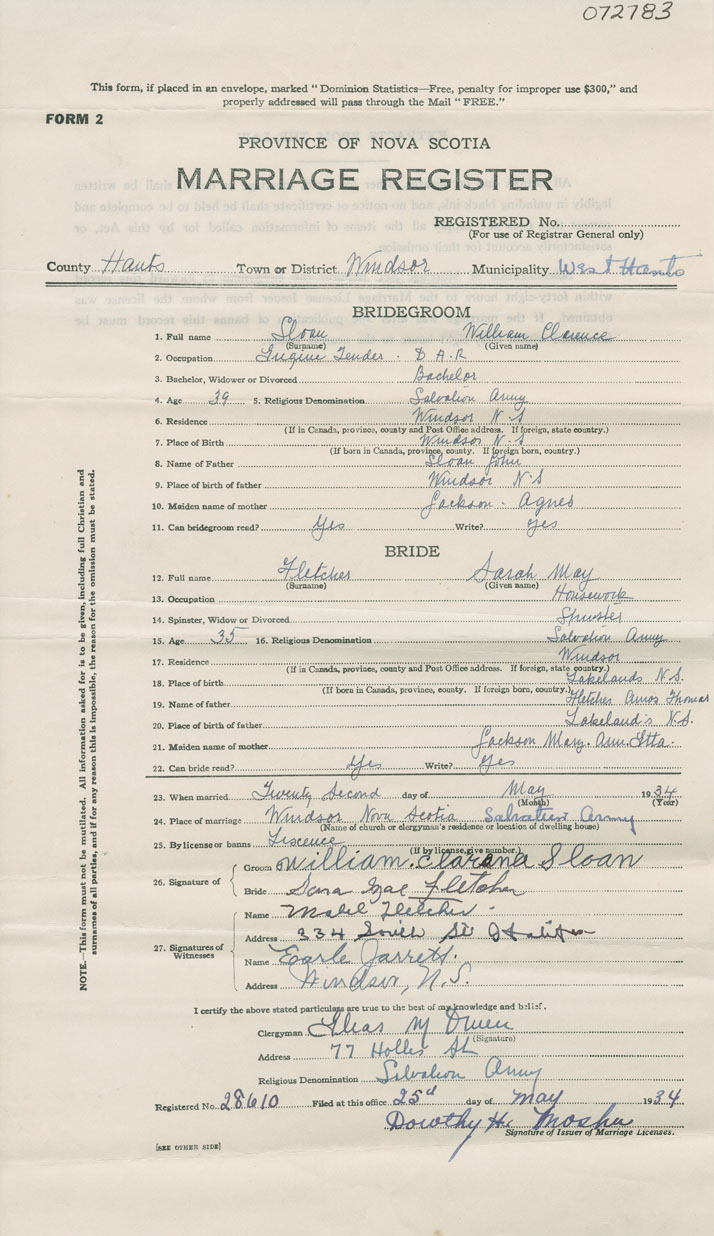 072783
This form, if placed in an envelope, marked "Dominion Statistics—Free, penalty for improper use $300," and
properly addressed will pass through the Mail "FREE."
FORM 2
PROVINCE OF NOVA SCOTIA
MARRIAGE REGISTER
REGISTERED No.
(For use of Registrar General only)
County Hants Town or District Windsor Municipality West Hants
BRIDEGROOM
1. Full name Sloan William Clarence
(Surname) (Given name)
2. Occupation Engine Tender. D A R
3. Bachelor, Widower or Divorced Bachelor
4. Age 39 5. Religious Denomination Salvation Army
6. Residence Windsor N.S
(If in Canada, province, county and Post Office address. If foreign, state country.)
7. Place of Birth Windsor N.S
(If born in Canada, province, county. If foreign born, country.)
8. Name of Father Sloan John
9. Place of birth of father Windsor N.S
10. Maiden name of mother Jackson. Agnes
11. Can bridegroom read? Yes Write? yes
BRIDE
12. Full name Fletcher Sarah May
(Surname) (Given name)
13. Occupation Housework
14. Spinster, Widow or Divorced Spinster
15. Age 35 16. Religious Denomination Salvation Army
17. Residence Windsor
(If in Canada, province, county and Post Office address. If foreign, state country.)
18. Place of birth Lakelands N.S.
(If born in Canada, province, county. If foreign born, country.)
19. Name of father Fletcher Amos Thomas
20. Place of birth of father Lakeland's N.S.
21. Maiden name of mother Jackson Mary. Ann. Etta
22. Can bride read? Yes Write? Yes
23. When married Twenty Second day of May 1934
(Month) (Year)
24. Place of marriage Windsor Nova Scotia Salvation Army
(Name of church or clergyman's residence or location of dwelling house)
25. By license or banns Liscence
(If by license, give number.)
26. Signature of Groom William. Clarence Sloan
Bride Sara Mae Fletcher
27. Signatures of Witnesses
Name Mabel Fletcher
Address 334 South St Halifax
Name Earle Jarrett.
Address Windsor, N.S.
I certify the above stated particulars are true to the best of my knowledge and belief.
Clergyman M Owen
(Signature)
Address 77 Hollis St
Religious Denomination Salvation Army
Registered No. 28610 Filed at this office 25d day of May 1934
Dorothy H. Mosher
Signature of Issuer of Marriage Licenses.
[SEE OTHER SIDE]
NOTE.—This form must not be mutilated. All information asked for is to be given, including full Christian and
surnames of all parties, and if for any reason this is impossible, the reason for the omission must be stated.